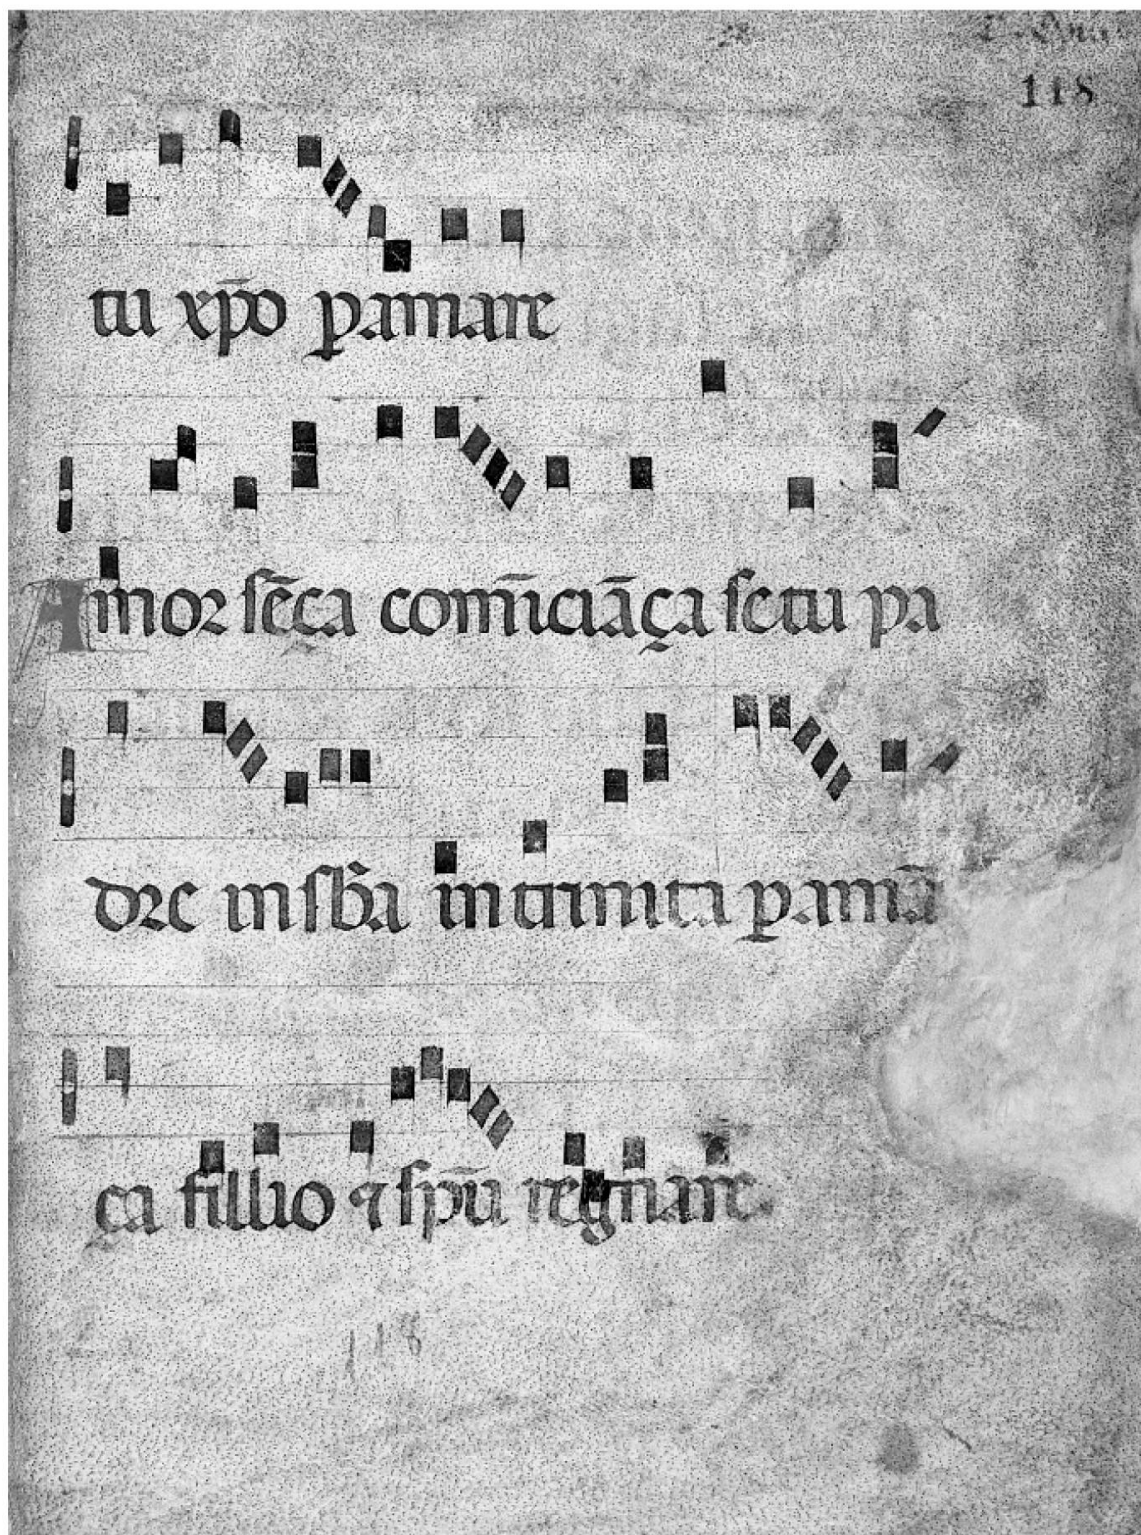 118
tu xp̄o ꝑamare
Amor sēça com̄ciāça se tu pa
dre in sb̄a in trinita ꝑamā
ça fillio ⁊ spū regnare.
118